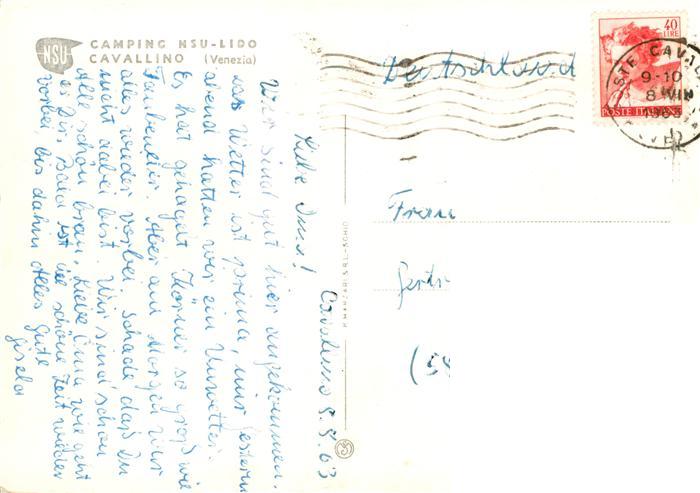 NSU
CAMPING NSU-LIDO
CAVALLINO (Venezia)
Cavalino 5.5.63
Liebe Oma!
Wir sind gut hier angekommen.
das Wetter ist prima, nur gestern
abend hatten wir ein Unwetter.
Es hat gehagelt Körner so groß wie
Taubeneier. Aber am Morgen war
alles wieder vorbei. Schade daß Du
nicht dabei bist. Wir sind schon
alle schön braun. Liebe Oma wie geht
es Dir, bald ist die schöne Zeit wieder
vorbei, bis dahin Alles Gute
Gisela
Deutschland
Frau
40
LIRE
POSTE ITALIANE
9-10
8
1963